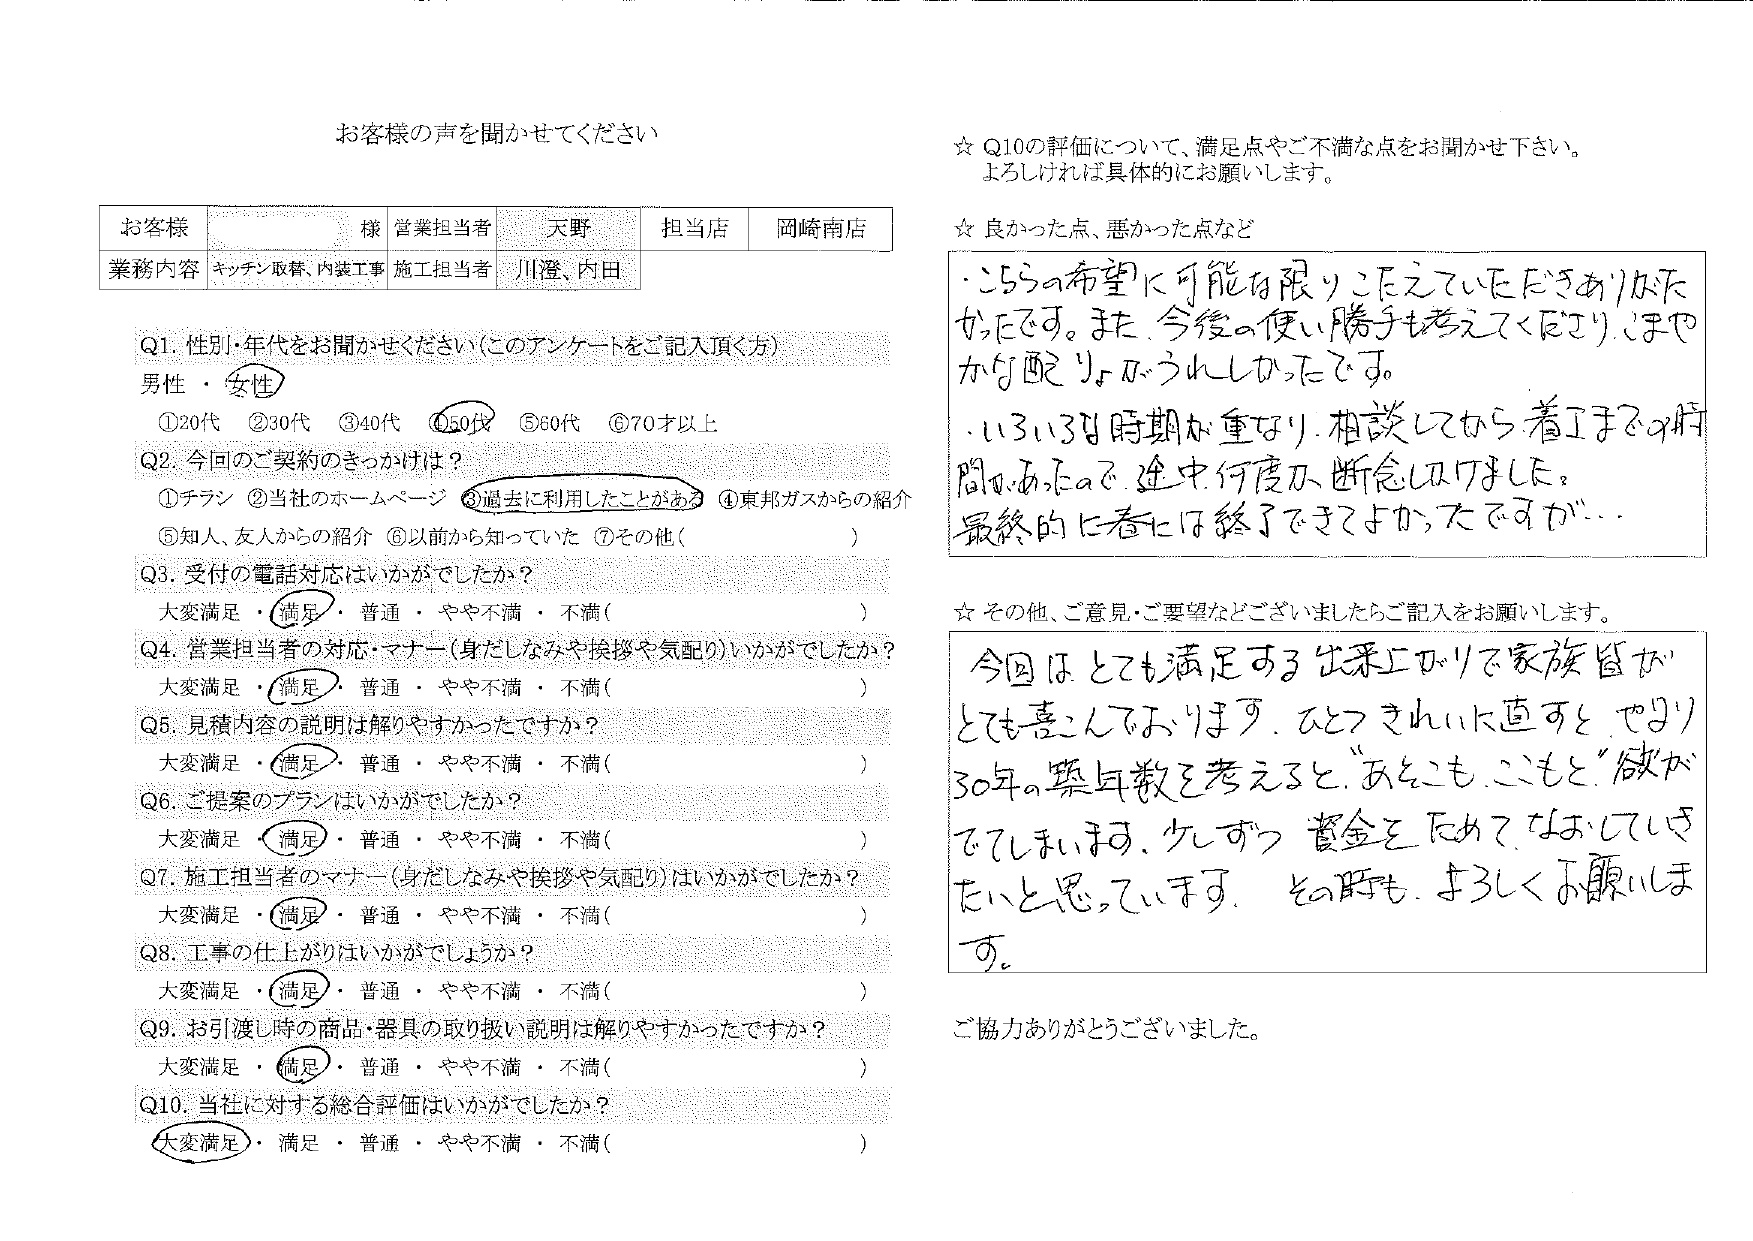 お客様の声を聞かせてください
お客様 様 営業担当者 天野 担当店 岡崎南店
業務内容 キッチン取替、内装工事 施工担当者 川澄、内田
Q1. 性別・年代をお聞かせください(このアンケートをご記入頂く方)
男性 ・ 女性
①20代 ②30代 ③40代 ④50代 ⑤60代 ⑥70才以上
Q2. 今回のご契約のきっかけは?
①チラシ ②当社のホームページ ③過去に利用したことがある ④東邦ガスからの紹介
⑤知人、友人からの紹介 ⑥以前から知っていた ⑦その他( )
Q3. 受付の電話対応はいかがでしたか?
大変満足 ・ 満足 ・ 普通 ・ やや不満 ・ 不満( )
Q4. 営業担当者の対応・マナー(身だしなみや挨拶や気配り)いかがでしたか?
大変満足 ・ 満足 ・ 普通 ・ やや不満 ・ 不満( )
Q5. 見積内容の説明は解りやすかったですか?
大変満足 ・ 満足 ・ 普通 ・ やや不満 ・ 不満( )
Q6. ご提案のプランはいかがでしたか?
大変満足 ・ 満足 ・ 普通 ・ やや不満 ・ 不満( )
Q7. 施工担当者のマナー(身だしなみや挨拶や気配り)はいかがでしたか?
大変満足 ・ 満足 ・ 普通 ・ やや不満 ・ 不満( )
Q8. 工事の仕上がりはいかがでしょうか?
大変満足 ・ 満足 ・ 普通 ・ やや不満 ・ 不満( )
Q9. お引渡し時の商品・器具の取り扱い説明は解りやすかったですか?
大変満足 ・ 満足 ・ 普通 ・ やや不満 ・ 不満( )
Q10. 当社に対する総合評価はいかがでしたか?
大変満足 ・ 満足 ・ 普通 ・ やや不満 ・ 不満( )
☆ Q10の評価について、満足点やご不満な点をお聞かせ下さい。
よろしければ具体的にお願いします。
☆ 良かった点、悪かった点など
・こちらの希望に可能な限りこたえていただきありがた
かったです。また、今後の使い勝手も考えてくださり、こまや
かな配りょがうれしかったです。
・いろいろな時期が重なり、相談してから着工までの時
間があったので、途中、何度か、断念しかけました。
最終的に春には終了できてよかったですが…
☆ その他、ご意見・ご要望などございましたらご記入をお願いします。
今回は とても満足する出来上がりで家族皆が
とても喜こんでおります。ひとつきれいに直すと、やはり
30年の築年数を考えると、"あそこも、ここもと"欲が
でてしまいます。少しずつ 資金をためて、なおしていき
たいと思っています。 その時も、よろしくお願いしま
す。
ご協力ありがとうございました。